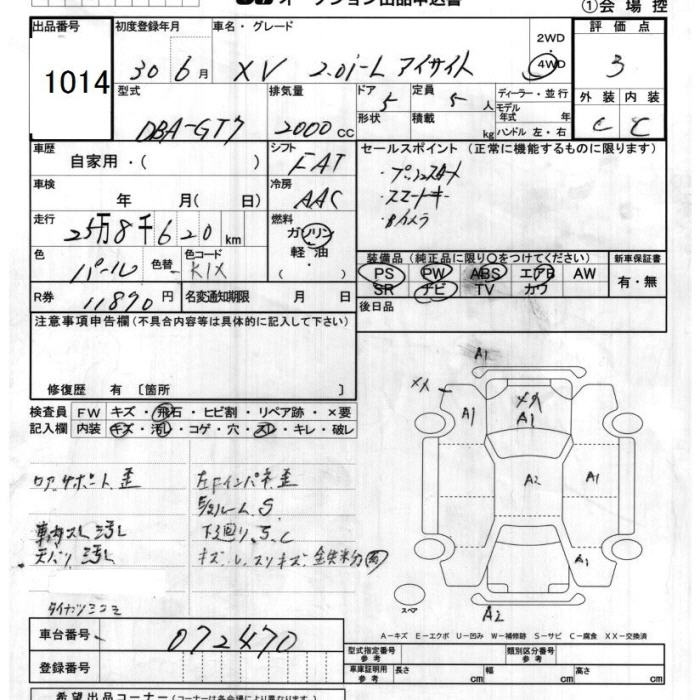 オークション出品申込書
①会場控
出品番号
1014
初度登録年月
30年6月
車名・グレード
XV 2.0i-L アイサイト
2WD
4WD
評価点
3
外装 内装
C C
型式
DBA-GT7
排気量
2000cc
ドア
5
形状
定員
5人
積載
kg
ディーラー・並行
モデル年式 年
ハンドル 左・右
車歴
自家用・( )
シフト
FAT
セールスポイント (正常に機能するものに限る)
・プッシュスタート
・スマートキー
・Bカメラ
車検
年 月( 日)
冷房
AAC
走行
25万8千620km
燃料
ガソリン
軽油
・( )
色
パール
色替
色コード
K1X
装備品(純正品に限り○をつけてください)
PS PW ABS エアB AW
SR ナビ TV カワ
新車保証書
有・無
R券
11890円
名変通知期限 月 日
後日品
注意事項申告欄(不具合内容等は具体的に記入して下さい)
修復歴 有〔箇所 〕
検査員記入欄
FW キズ・飛石・ヒビ割・リペア跡・×要
内装 キズ・汚レ・コゲ・穴・スレ・キレ・破レ
コアサポート歪
左Fインパネ歪
下廻リ、S、C
車内スレ汚レ
天バリ汚レ
A1
XX
A1
A1
A2
A1
A1
A2
スペア
A-キズ E-エクボ U-凹み W-補修跡 S-サビ C-腐食 XX-交換済
車台番号
072470
登録番号
型式指定番号
参考
類別区分番号
参考
車庫証明用
参考
長さ cm
幅 cm
高さ cm
希望出品コーナー(コーナーは各会場により異なります。)